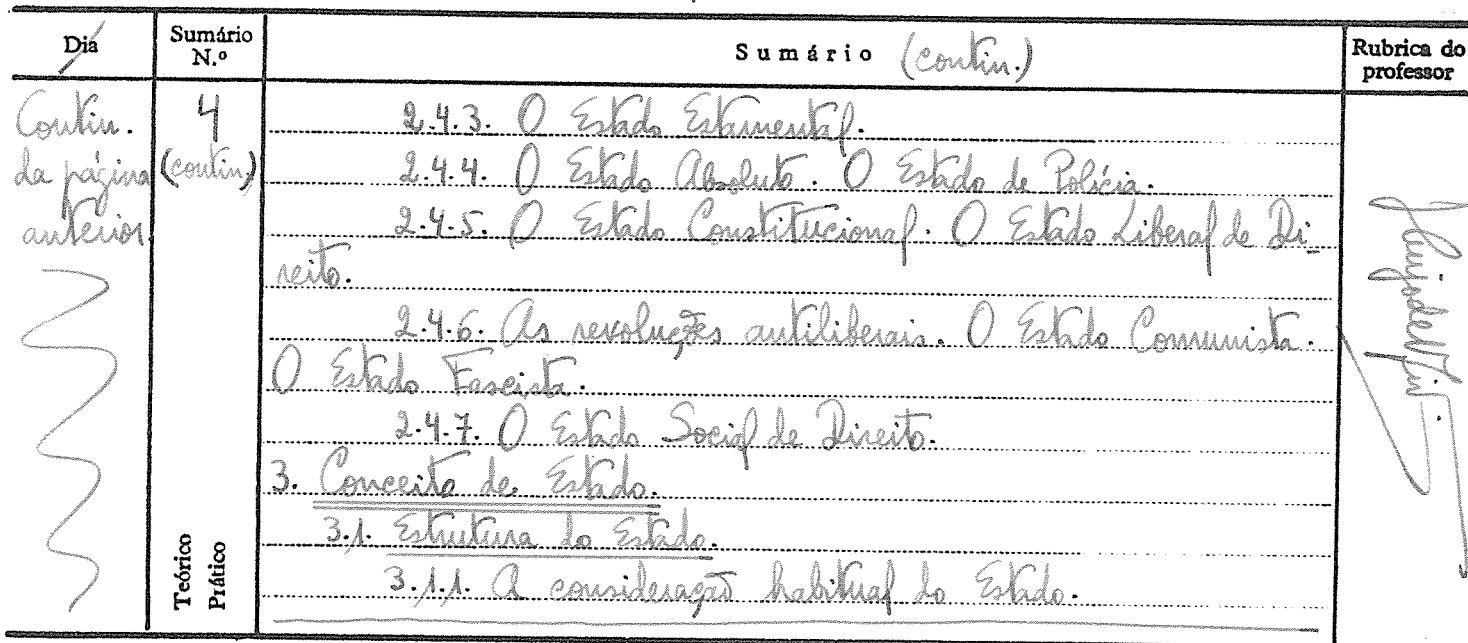 Dia
Sumário N.º
Sumário (contin.)
Rubrica do professor
Contin. da página anterior
4 (contin.)
2.4.3. O Estado Estamental.
2.4.4. O Estado Absoluto. O Estado de Polícia.
2.4.5. O Estado Constitucional. O Estado Liberal de Di-
reito.
2.4.6. As revoluções antiliberais. O Estado Comunista.
O Estado Fascista.
2.4.7. O Estado Social de Direito.
3. Conceito de Estado.
3.1. Estrutura do Estado.
3.1.1. A consideração habitual do Estado.
Teórico
Prático